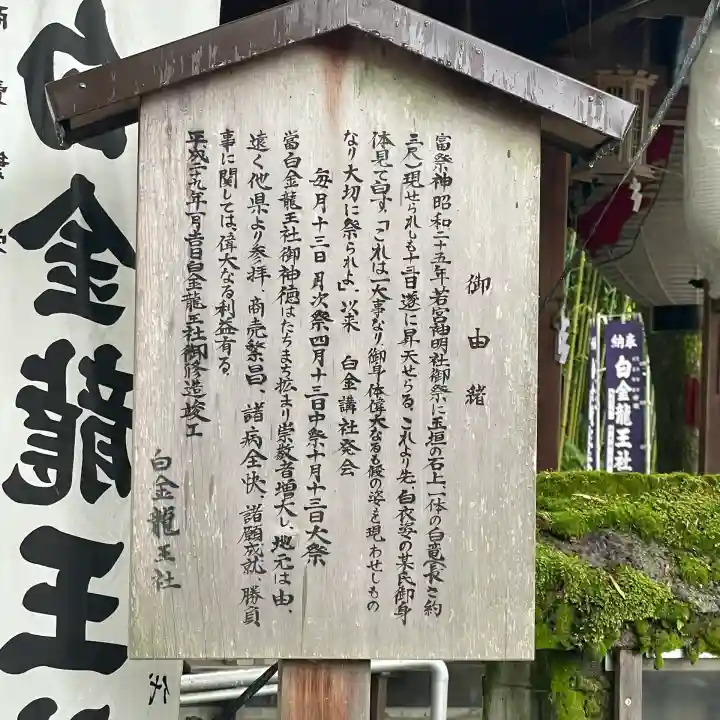 御由緒
當祭神昭和二十五年若宮神明社御祭に玉垣の石上、一体の白竜(長さ約
三尺)現せられしも十三日遂に昇天せらる、これより先、白衣姿の某氏御身
体見て白す、「これは一大事なり、御身体偉大なるも仮の姿を現わせしもの
なり大切に祭られよ」、以来 白金講社発会
毎月十三日月次祭四月十三日中祭十月十三日大祭
當白金龍王社御神徳はたちまち拡まり崇敬者増大し、地元は由、
遠く他県より参拝、商売繁昌、諸病全快、諸願成就、勝負
事に関しては、偉大なる利益有る。
白金龍王社御修造竣工
白金龍王社
白金龍王社
代
奉納
白金龍王社